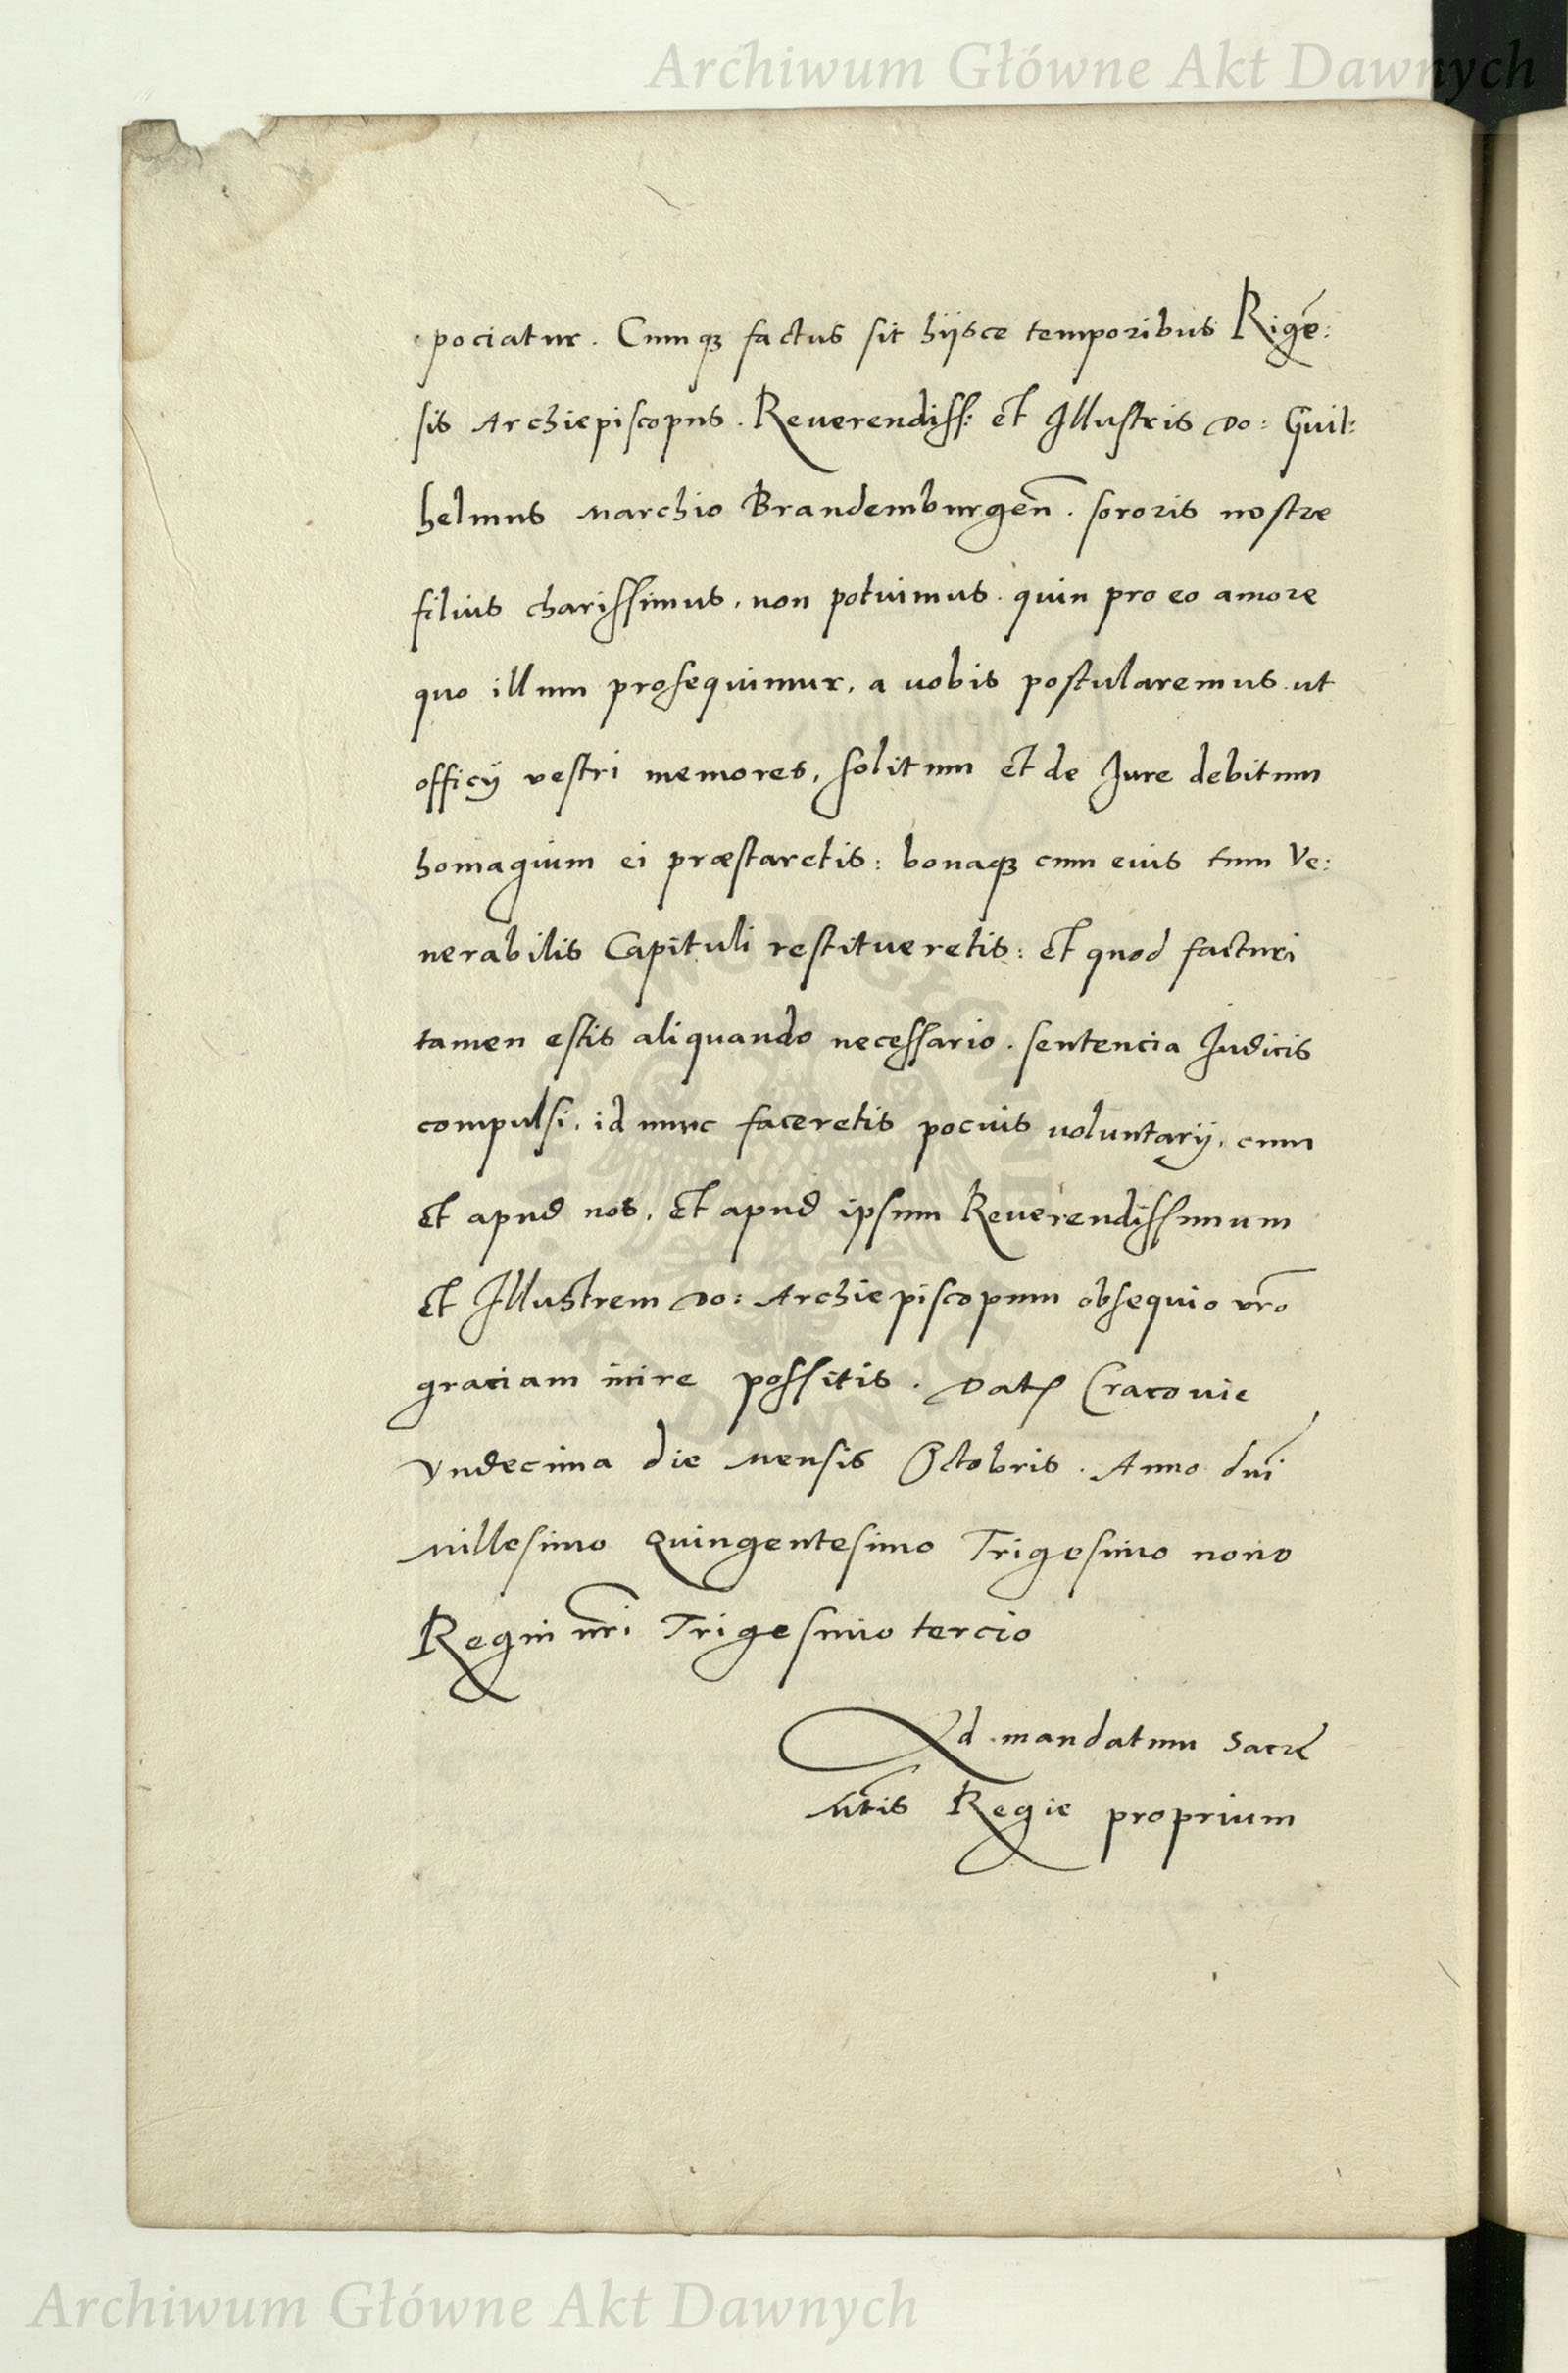 Archiwum Główne Akt Dawnych
pociatur. Cumqꝫ factus sit hijsce temporibus Rigē:
sis Archiepiscopus. Reuerendiss: et Illustris Do: Guil:
helmus Marchio Brandemburgeñ. sororis nostre
filius charissimus, non potuimus. quin pro eo amore
quo illum prosequimur, a uobis postularemus. ut
officij vestri memores, solitum et de Jure debitum
homagium ei præstaretis: bonaqꝫ cum eius tum Ve:
nerabilis Capituli restitueretis: et quod facturi
tamen estis aliquando necessario. sentencia Judicis
compulsi, id nunc faceretis pocius voluntarij, cum
et apud nos, et apud ipsum Reuerendissimum
et Illustrem Do: Archiepiscopum obsequio vr̃o
graciam inire possitis. Datꝭ Cracouie
Vndecima die Mensis Octobris. Anno dñi
Millesimo Quingentesimo Trigesimo nono
Regni nr̃i Trigesimo tercio
Ad mandatum Sacrę
Mtis Regie proprium
Archiwum Główne Akt Dawnych